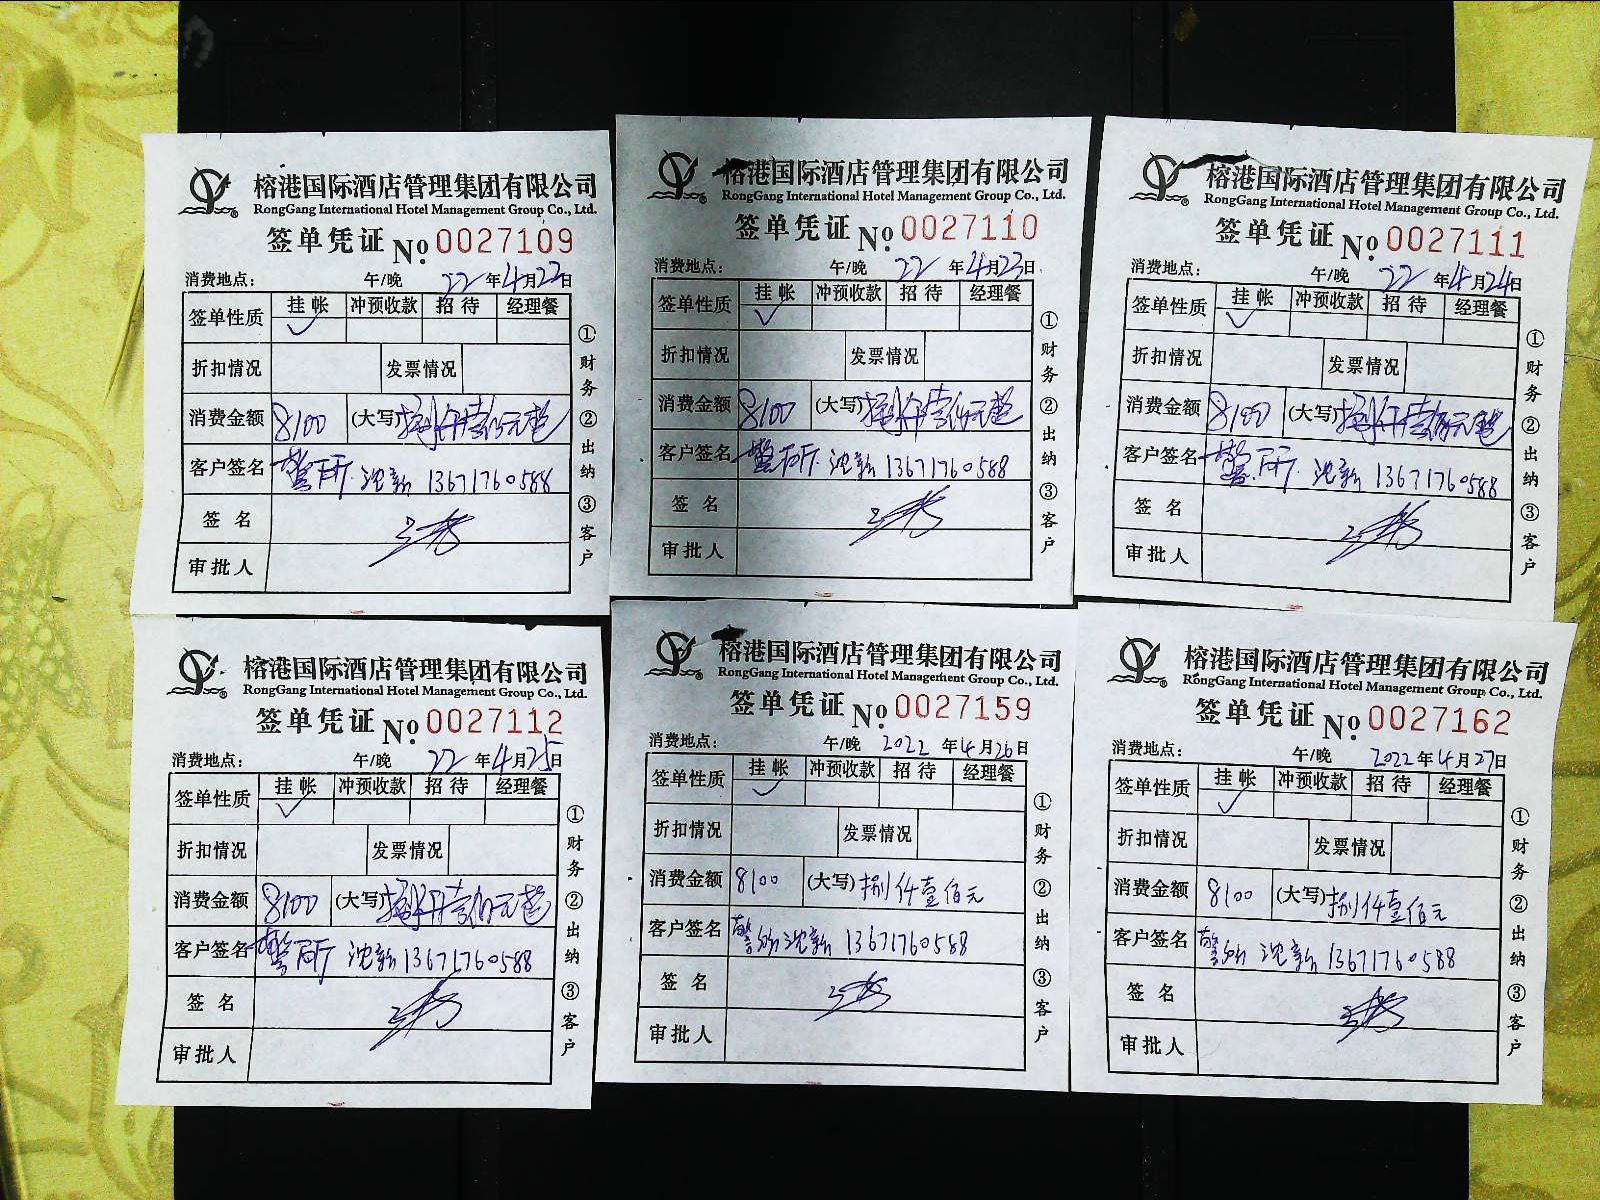 榕港国际酒店管理集团有限公司
RongGang International Hotel Management Group Co., Ltd.
签单凭证 No. 0027109
消费地点： 午/晚 22年4月22日
签单性质 挂帐 冲预收款 招待 经理餐
✓
折扣情况 发票情况
消费金额 8100 (大写) 捌仟壹佰元整
客户签名 警所 沈新 13671760588
签名
审批人
①财务②出纳③客户
榕港国际酒店管理集团有限公司
RongGang International Hotel Management Group Co., Ltd.
签单凭证 No. 0027110
消费地点： 午/晚 22年4月23日
签单性质 挂帐 冲预收款 招待 经理餐
✓
折扣情况 发票情况
消费金额 8100 (大写) 捌仟壹佰元整
客户签名 警所 沈新 13671760588
签名
审批人
①财务②出纳③客户
榕港国际酒店管理集团有限公司
RongGang International Hotel Management Group Co., Ltd.
签单凭证 No. 0027111
消费地点： 午/晚 22年4月24日
签单性质 挂帐 冲预收款 招待 经理餐
✓
折扣情况 发票情况
消费金额 8100 (大写) 捌仟壹佰元整
客户签名 警所 沈新 13671760588
签名
审批人
①财务②出纳③客户
榕港国际酒店管理集团有限公司
RongGang International Hotel Management Group Co., Ltd.
签单凭证 No. 0027112
消费地点： 午/晚 22年4月25日
签单性质 挂帐 冲预收款 招待 经理餐
✓
折扣情况 发票情况
消费金额 8100 (大写) 捌仟壹佰元整
客户签名 警所 沈新 13671760588
签名
审批人
①财务②出纳③客户
榕港国际酒店管理集团有限公司
RongGang International Hotel Management Group Co., Ltd.
签单凭证 No. 0027159
消费地点： 午/晚 2022年4月26日
签单性质 挂帐 冲预收款 招待 经理餐
✓
折扣情况 发票情况
消费金额 8100 (大写) 捌仟壹佰元
客户签名 警 沈新 13671760588
签名
审批人
①财务②出纳③客户
榕港国际酒店管理集团有限公司
RongGang International Hotel Management Group Co., Ltd.
签单凭证 No. 0027162
消费地点： 午/晚 2022年4月27日
签单性质 挂帐 冲预收款 招待 经理餐
✓
折扣情况 发票情况
消费金额 8100 (大写) 捌仟壹佰元
客户签名 警 沈新 13671760588
签名
审批人
①财务②出纳③客户